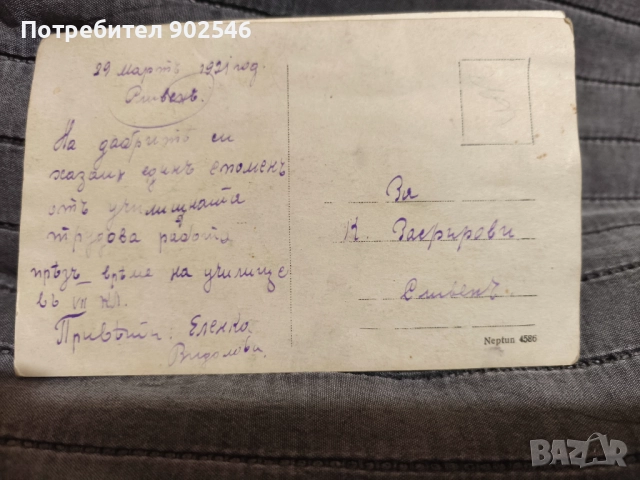 Потребител 902546
29 Мартъ 1921 год.
Сливенъ.
На добритѣ си
хазаи единъ споменъ
отъ училищната
трудова работа
прѣзъ врѣме на училище
въ VII кл.
Привѣти: Еленка
Видолова.
За
К.
Сливенъ
Neptun 4586
BAZAR